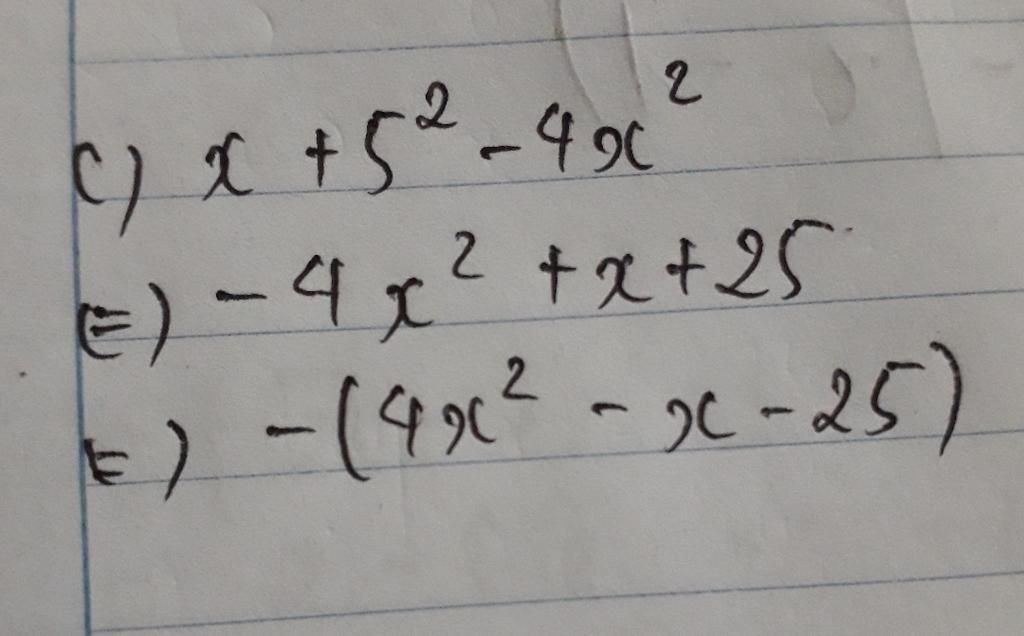 c) x + 5² - 4x²
=) - 4x² + x + 25
=) - (4x² - x - 25)